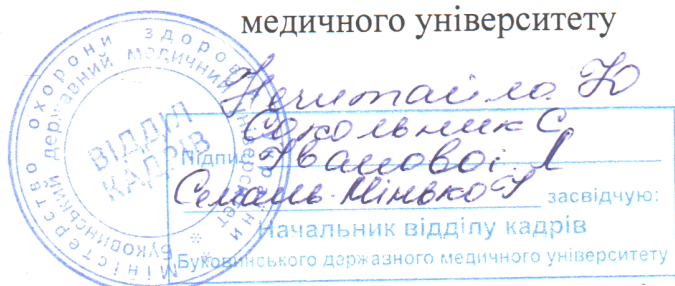 медичного університету
Нечитайло Ю
Сокольник С
Підпис Іванової Л
Семань-Мінько І засвідчую:
Начальник відділу кадрів
Буковинського державного медичного університету
Міністерство охорони здоров'я України
Буковинський державний медичний університет
ВІДДІЛ
КАДРІВ